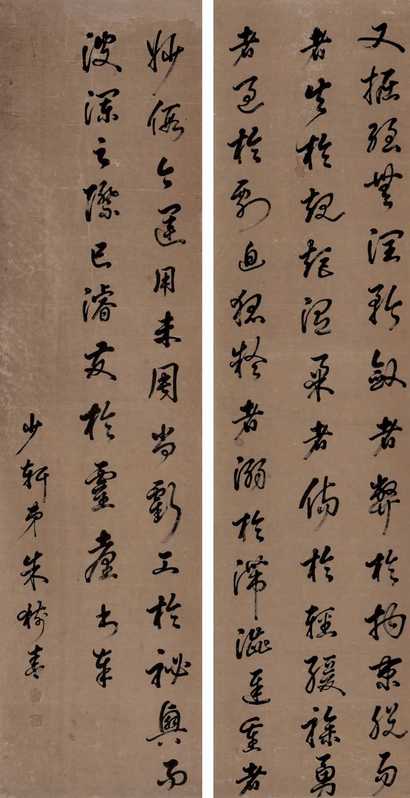 又掘強無潤矜斂者弊於拘束脫易
者失於規矩溫柔者傷於輕緩躁勇
者過於剽迫狐疑者溺於滯澀遲重者
妙假令運用未周尚虧工於秘奧而
波瀾之際已濬發於靈臺書奉
少軒弟朱